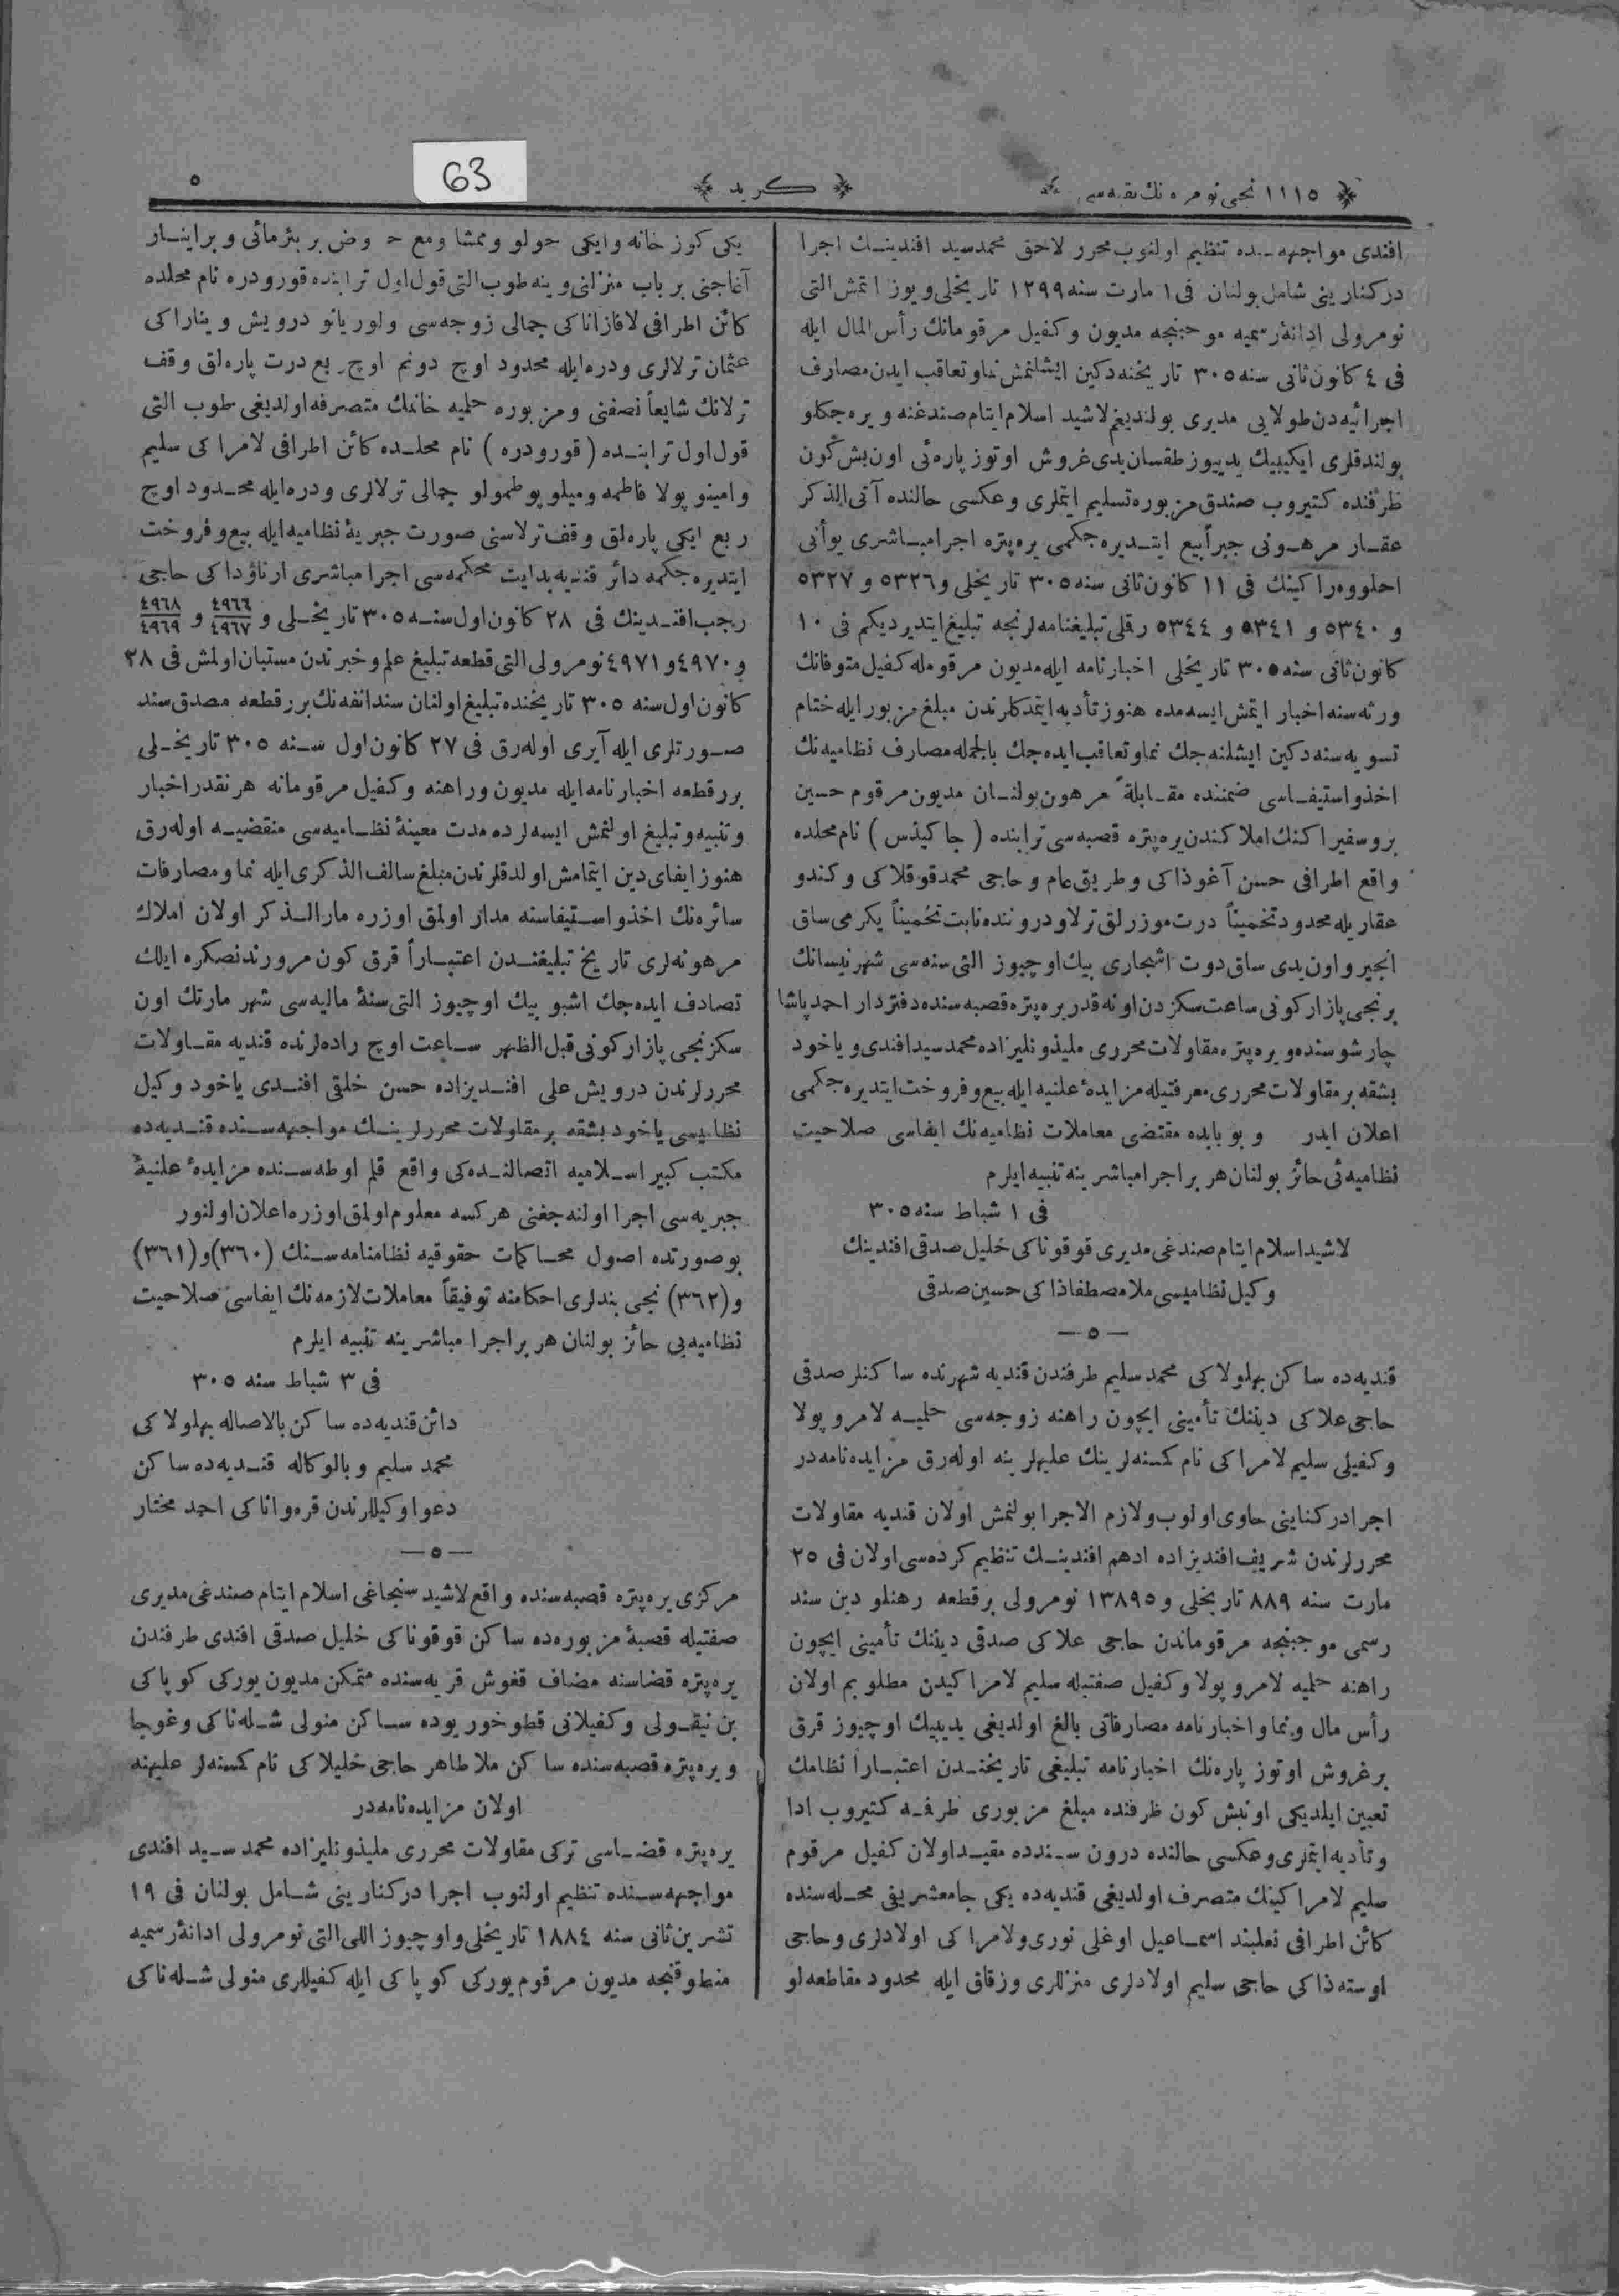 ١١١٥ نجی نومره نك بقیه سی
كرید
٥
63
افندی مواجهه سنده تنظیم اولنوب محرر لاحق محمد سید افندینك اجرا
دركنارینی شامل بولنان فی ١ مارت سنه ١٢٩٩ تاریخلی و یوز اتمش التی
نومرولی ادانهٔ رسمیه موجبنجه مدیون و كفیل مرقومانك رأس المال ایله
فی ٤ كانون ثانی سنه ٣٠٥ تاریخنه دكین ایشلنمش نما و تعاقب ایدن مصارف
اجرائیه دن طولایی مدیری بولندیغم لاشید اسلام ایتام صندغنه ویره جكلو
بولندقلری ایكیبیك یدییوز طقسان یدی غروش اوتوز پاره ئی اون بش كون
ظرفنده كتیروب صندق مزبوره تسلیم ایتملری و عكسی حالنده آتی الذكر
عقار مرهونی جبراً بیع ایتدیره جكمی یره پتره اجرا مباشری یوآنی
احلووه راكینك فی ١١ كانون ثانی سنه ٣٠٥ تاریخلی و ٥٣٢٦ و ٥٣٢٧
و ٥٣٤٠ و ٥٣٤١ و ٥٣٤٤ رقملی تبلیغنامه لرنجه تبلیغ ایتدیردیكم فی ١٠
كانون ثانی سنه ٣٠٥ تاریخلی اخبارنامه ایله مدیون مرقومله كفیل متوفانك
ورثه سنه اخبار ایتمش ایسه مده هنوز تأدیه ایتمدكلرندن مبلغ مزبور ایله ختام
تسویه سنه دكین ایشلنه جك نما و تعاقب ایده جك بالجمله مصارف نظامیه نك
اخذ و استیفاسی ضمننده مقابلةً مرهون بولنان مدیون مرقوم حسین
بروسفیراكنك املاكندن یره پتره قصبه سی ترابنده ( جاكیذس ) نام محلده
واقع اطرافی حسن آغوذاكی و طریق عام و حاجی محمد قوقلاكی و كندو
عقاریله محدود تخمیناً درت موزرلق ترلا و دروننده نابت تخمیناً یكرمی ساق
انجیر و اون یدی ساق دوت اشجاری بیك اوچیوز التی سنه سی شهر نیسانك
برنجی پازار كونی ساعت سكزدن اونه قدر یره پتره قصبه سنده دفتردار احمد پاشا
چارشوسنده و یره پتره مقاولات محرری ملیذونلیزاده محمد سید افندی و یاخود
بشقه بر مقاولات محرری معرفتیله مزایدهٔ علنیه ایله بیع و فروخت ایتدیره جكمی
اعلان ایدر و بو بابده مقتضی معاملات نظامیه نك ایفاسی صلاحیت
نظامیه ئی حائز بولنان هر بر اجرا مباشرینه تنبیه ایلرم
فی ١ شباط سنه ٣٠٥
لاشید اسلام ایتام صندغی مدیری قوقوناكی خلیل صدقی افندینك
وكیل نظامیسی ملا مصطفاذاكی حسین صدقی
— ٥ —
قندیه ده ساكن بهلولاكی محمد سلیم طرفندن قندیه شهرنده ساكنلر صدقی
حاجی علاكی دیننك تأمینی ایچون راهنه زوجه سی حلمیه لامروپولا
وكفیلی سلیم لامراكی نام كمسنه لرینك علیهلرینه اوله رق مزایده نامه در
اجرا دركناینی حاوی اولوب ولازم الاجرا بولنمش اولان قندیه مقاولات
محررلرندن شریف افندیزاده ادهم افندینك تنظیم كرده سی اولان فی ٢٥
مارت سنه ٨٨٩ تاریخلی و ١٣٨٩٥ نومرولی بر قطعه رهنلو دین سند
رسمی موجبنجه مرقوماندن حاجی علاكی صدقی دیننك تأمینی ایچون
راهنه حلمیه لامروپولا وكفیل صفتیله سلیم لامراكیدن مطلوبم اولان
رأس مال ونما و اخبارنامه مصارفاتی بالغ اولدیغی یدیبیك اوچیوز قرق
بر غروش اوتوز پاره نك اخبارنامه تبلیغی تاریخندن اعتباراً نظامك
تعیین ایلدیكی اونبش كون ظرفنده مبلغ مزبوری طرفمه كتیروب ادا
وتأدیه ایتملری و عكسی حالنده درون سندده مقید اولان كفیل مرقوم
سلیم لامراكینك متصرف اولدیغی قندیه ده یكی جامعشریفی محله سنده
كائن اطرافی نعلبند اسماعیل اوغلی نوری ولامراكی اولادلری و حاجی
اوسته ذاكی حاجی سلیم اولادلری منزللری وزقاق ایله محدود مقاطعه لو
یكی كوز خانه و ایكی حولو و ممشا و مع حوض بر بئر مائی و بر اینار
آغاجنی بر باب منزلنی و ینه طوب التی قول اول ترابنده قورودره نام محلده
كائن اطرافی لافازاناكی جمالی زوجه سی ولوریانو درویش و یناراكی
عثمان ترلالری و دره ایله محدود اوچ دونم اوچ ربع درت پاره لق وقف
ترلانك شایعاً نصفنی و مزبوره حلمیه خانمك متصرفه اولدیغی طوب التی
قول اول ترابنده ( قورودره ) نام محلده كائن اطرافی لامراكی سلیم
وامینو پولا فاطمه ومیلوپوطمولو جمالی ترلالری و دره ایله محدود اوچ
ربع ایكی پاره لق وقف ترلاسنی صورت جبریهٔ نظامیه ایله بیع و فروخت
ایتدیره جكمه دائر قندیه بدایت محكمه سی اجرا مباشری ارناؤداكی حاجی
رجب افندینك فی ٢٨ كانون اول سنه ٣٠٥ تاریخلی و ٤٩٦٦/٤٩٦٧ و ٤٩٦٨/٤٩٦٩
و ٤٩٧٠ و ٤٩٧١ نومرولی التی قطعه تبلیغ علم و خبرندن مستبان اولمش فی ٢٨
كانون اول سنه ٣٠٥ تاریخنده تبلیغ اولنان سند انفه نك برر قطعه مصدق سند
صورتلری ایله آیری اوله رق فی ٢٧ كانون اول سنه ٣٠٥ تاریخلی
برر قطعه اخبارنامه ایله مدیون و راهنه وكفیل مرقومانه هر نقدر اخبار
و تنبیه و تبلیغ اولنمش ایسه لرده مدت معینهٔ نظامیه سی منقضیه اوله رق
هنوز ایفای دین ایتمامش اولدقلرندن مبلغ سالف الذكری ایله نما و مصارفات
سائره نك اخذ و استیفاسنه مدار اولمق اوزره مار الذكر اولان املاك
مرهونه لری تاریخ تبلیغندن اعتباراً قرق كون مرورندنصكره ایلك
تصادف ایده جك اشبو بیك اوچیوز التی سنهٔ مالیه سی شهر مارتك اون
سكزنجی پازار كونی قبل الظهر ساعت اوچ راده لرنده قندیه مقاولات
محررلرندن درویش علی افندیزاده حسن خلقی افندی یاخود وكیل
نظامیسی یاخود بشقه بر مقاولات محررلرینك مواجهه سنده قندیه ده
مكتب كبیر اسلامیه اتصالنده كی واقع قلم اوطه سنده مزایدهٔ علنیهٔ
جبریه سی اجرا اولنه جغنی هركسه معلوم اولمق اوزره اعلان اولنور
بو صورتده اصول محاكمات حقوقیه نظامنامه سنك (٣٦٠) و (٣٦١)
و (٣٦٢) نجی بندلری احكامنه توفیقاً معاملات لازمه نك ایفاسی صلاحیت
نظامیه یی حائز بولنان هر بر اجرا مباشرینه تنبیه ایلرم
فی ٣ شباط سنه ٣٠٥
دائن قندیه ده ساكن بالاصاله بهلولاكی
محمد سلیم و بالوكاله قندیه ده ساكن
دعوا وكیللرندن قره واناكی احمد مختار
— ٥ —
مركزی یره پتره قصبه سنده واقع لاشید سنجاغی اسلام ایتام صندغی مدیری
صفتیله قصبهٔ مزبوره ده ساكن قوقوناكی خلیل صدقی افندی طرفندن
یره پتره قضاسنه مضاف قفوش قریه سنده متمكن مدیون یوركی كوپاكی
بن نیقولی وكفیلانی قطوخوریوده ساكن منولی شله ناكی وغوجا
و یره پتره قصبه سنده ساكن ملا طاهر حاجی خلیلاكی نام كمسنه لر علیهنه
اولان مزایده نامه در
یره پتره قضاسی تركی مقاولات محرری ملیذونلیزاده محمد سید افندی
مواجهه سنده تنظیم اولنوب اجرا دركنارینی شامل بولنان فی ١٩
تشرین ثانی سنه ١٨٨٤ تاریخلی و اوچیوز اللی التی نومرولی ادانهٔ رسمیه
منطوقنجه مدیون مرقوم یوركی كوپاكی ایله كفیللری منولی شله ناكی